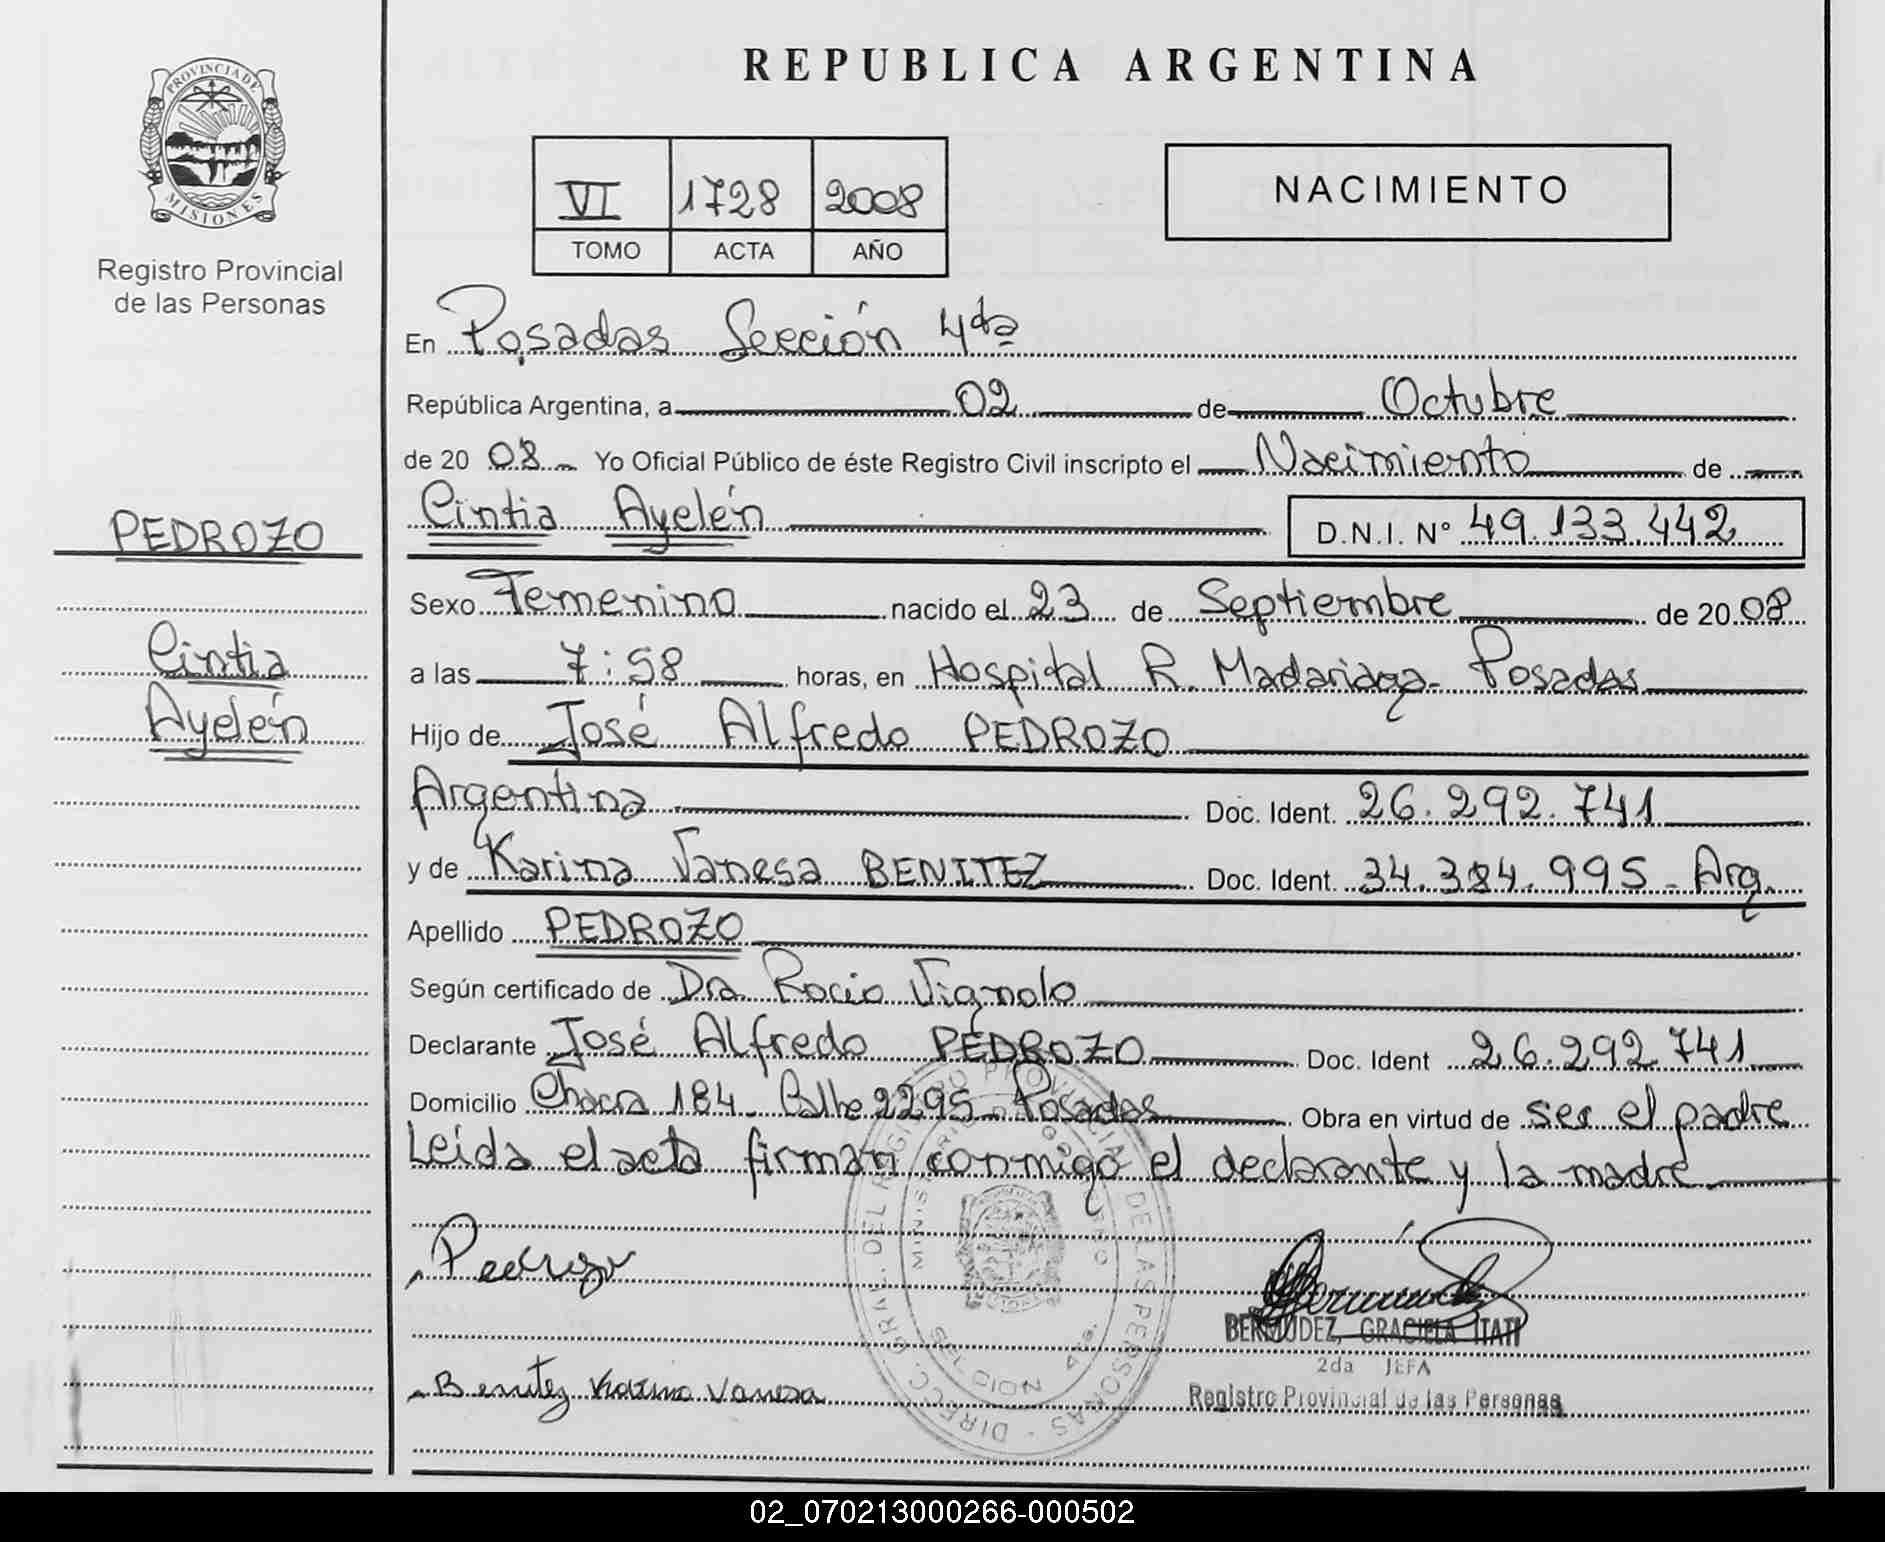 REPUBLICA ARGENTINA
PROVINCIA DE
MISIONES
Registro Provincial
de las Personas
VI 1728 2008
TOMO ACTA AÑO
NACIMIENTO
En Posadas Sección 4ta
República Argentina, a 02 de Octubre
de 20 08 Yo Oficial Público de éste Registro Civil inscripto el Nacimiento de
Cintia Ayelén D.N.I. N° 49.133.442
PEDROZO
Cintia
Ayelén
Sexo Femenino nacido el 23 de Septiembre de 20 08
a las 7:58 horas, en Hospital R. Madariaga - Posadas
Hijo de José Alfredo PEDROZO
Argentina Doc. Ident. 26.292.741
y de Karina Vanesa BENITEZ Doc. Ident. 34.384.995 - Arg.
Apellido PEDROZO
Según certificado de Dra Rocio Vignolo
Declarante José Alfredo PEDROZO Doc. Ident 26.292.741
Domicilio Chacra 184 - Calle 2295 - Posadas Obra en virtud de ser el padre
Leida el acta firman conmigo el declarante y la madre
Pedrozo
BERMUDEZ, GRACIELA ITATI
2da JEFA
Benitez Karina Vanesa
Registro Provincial de las Personas
02_070213000266-000502